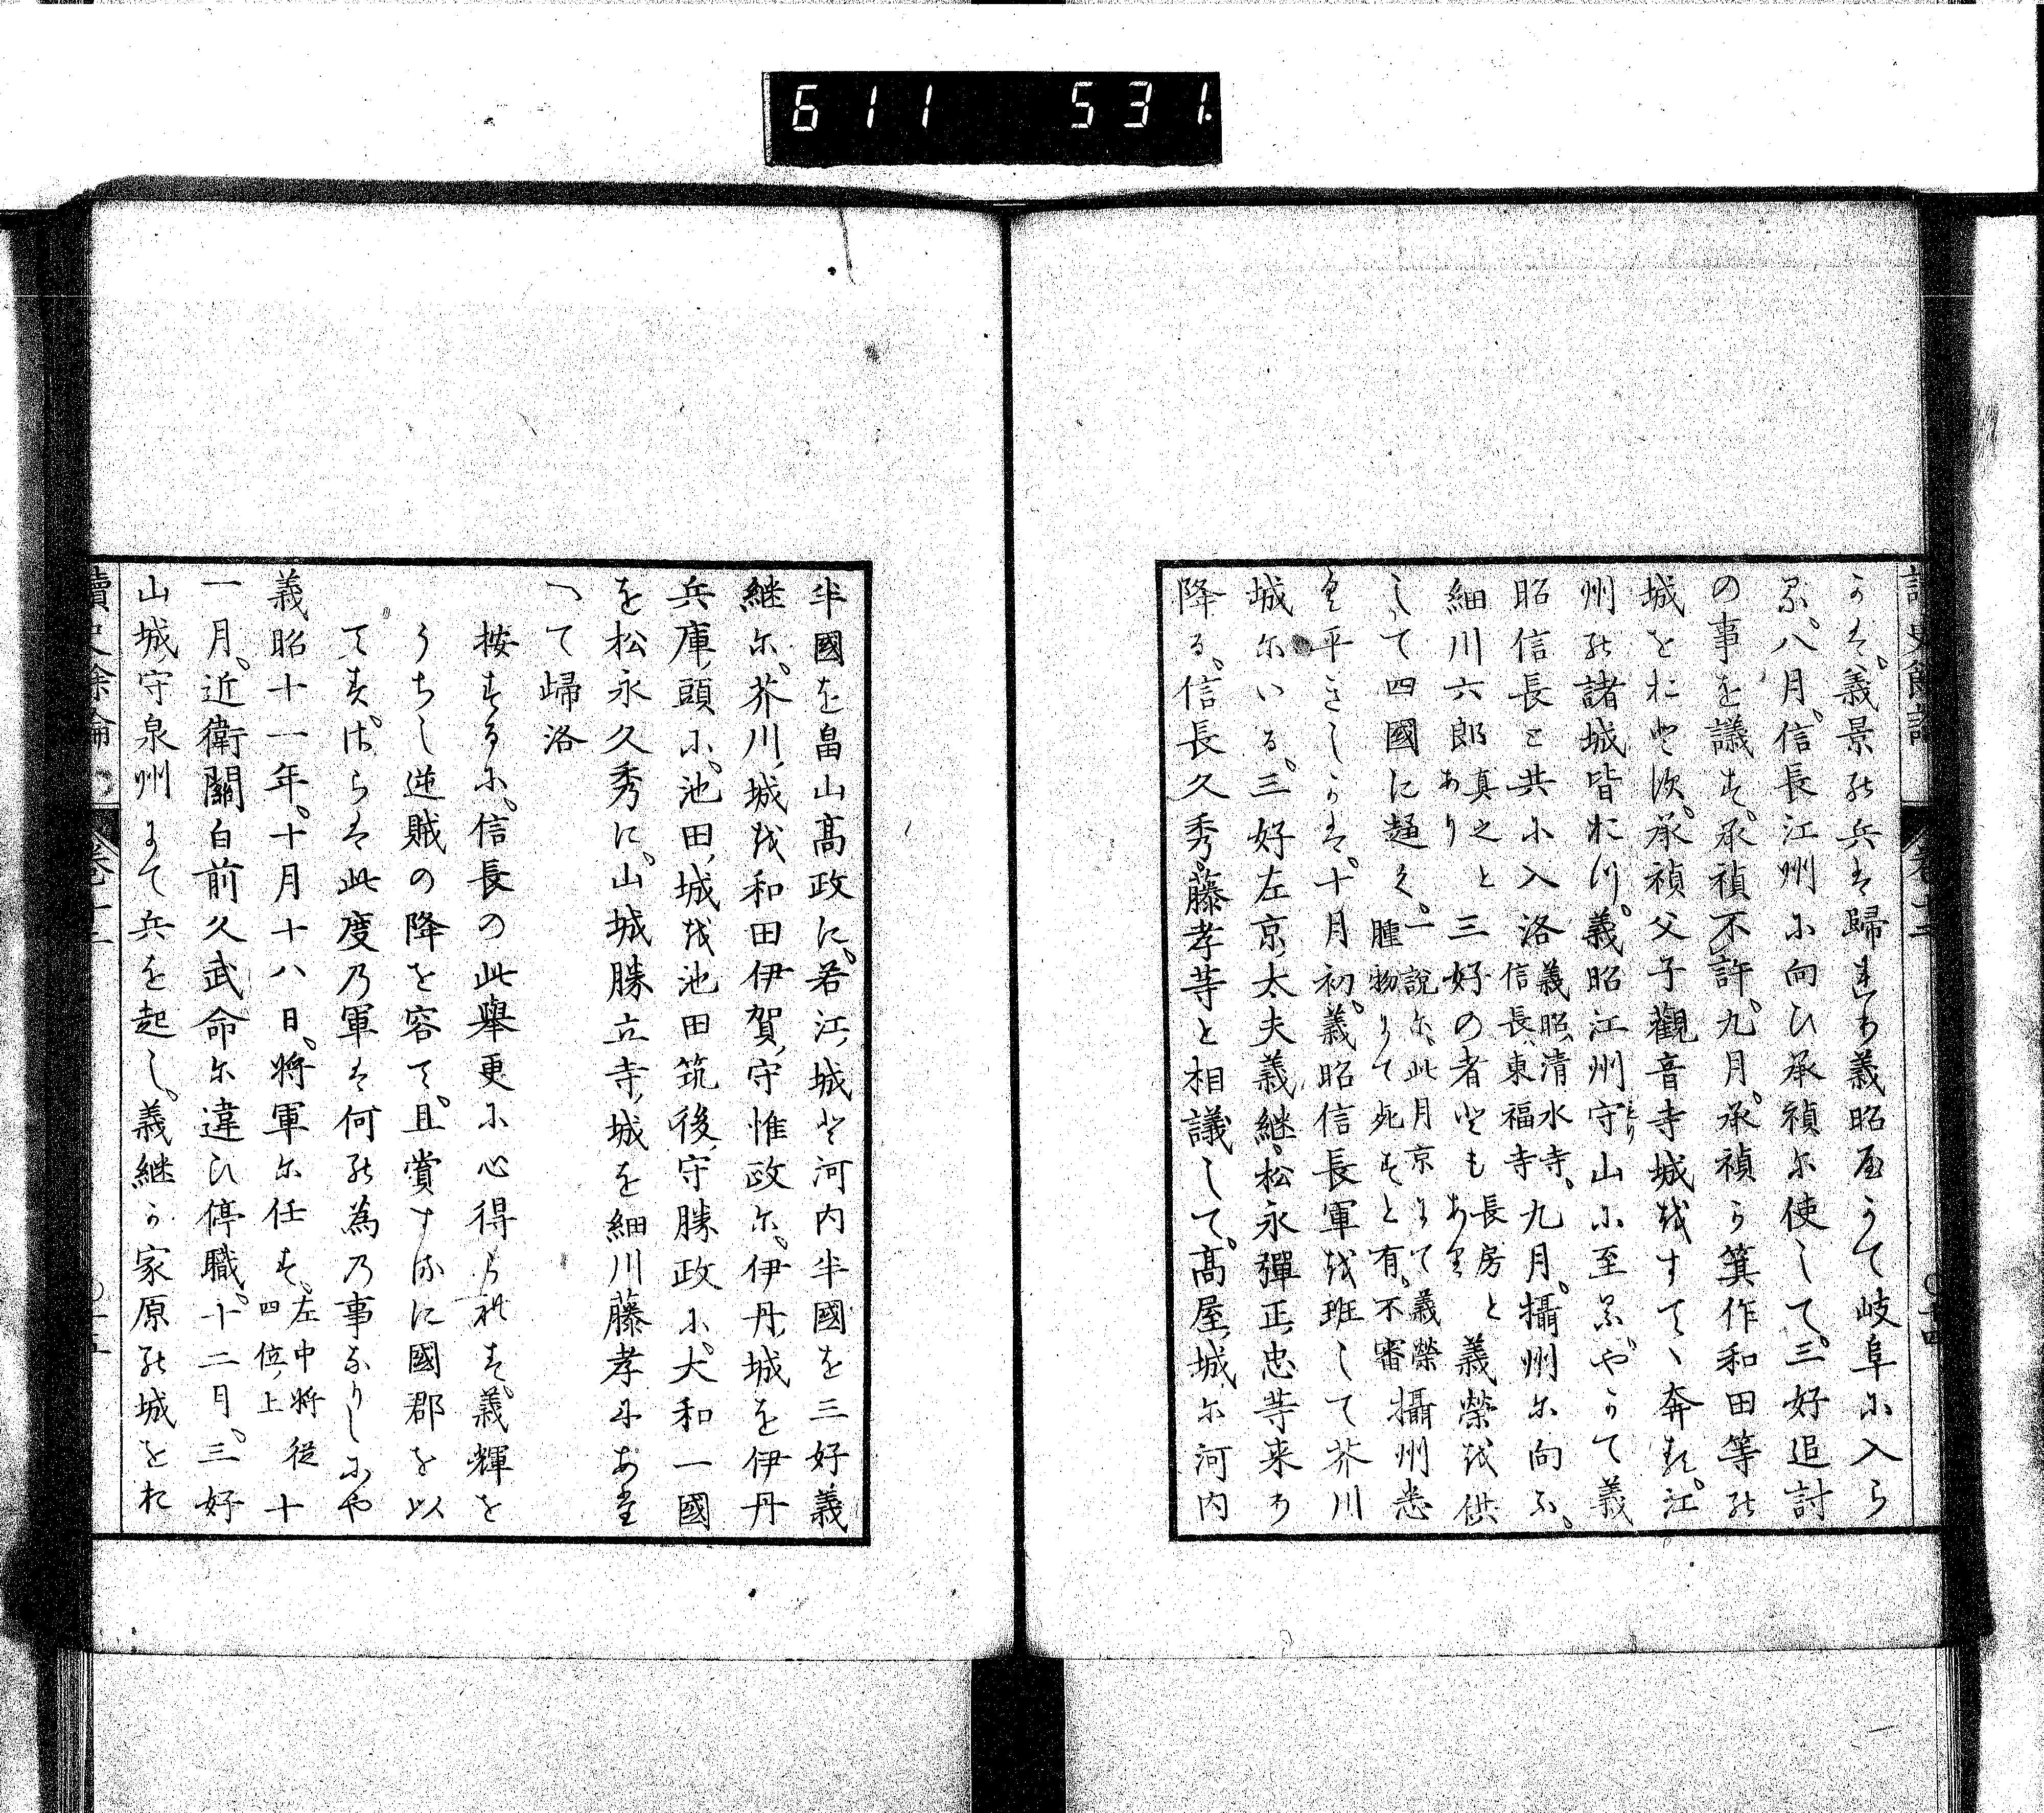 611 531.
かは、義景の兵は歸けり義昭屋かて岐阜に入ら
る、八月、信長江州に向ひ承禎に使して、三好追討
の事を議す、承禎不許、九月、承禎か箕作和田等の
城をおとす、承禎父子觀音寺城をすてゝ奔る、江
州の諸城皆おつ、義昭江州守山に至るやかて義
昭信長と共に入洛義昭、清水寺、信長、東福寺九月、攝州に向ふ、
細川六郎真之とあり三好の者ともあり長房と義榮を供
して四國に趣く、一説に、此月京にて義榮腫物りて死すと有、不審攝州悉
く平きしかは、十月初、義昭信長軍を班して芥川
城にいる、三好左京太夫義継、松永彈正忠等来り
降る、信長久秀藤孝等と相議して、髙屋城に河内
半國を畠山髙政に、若江城と河内半國を三好義
継に、芥川城を和田伊賀守惟政に、伊丹城を伊丹
兵庫頭に、池田城を池田筑後守勝政に、大和一國
を松永久秀に、山城勝立寺城を細川藤孝にあた
へて歸洛
按するに、信長の此舉更に心得られす、義輝を
うちし逆賊の降を容て、且賞するに國郡を以
てす、さらは此度の軍は何の為の事なりしにや
義昭十一年、十月十八日、將軍に任す、左中將從四位上十
一月、近衛關白前久武命に違ひ停職、十二月、三好
山城守泉州にて兵を起し、義継か家原の城をお
讀史餘論 卷十二 ○十五